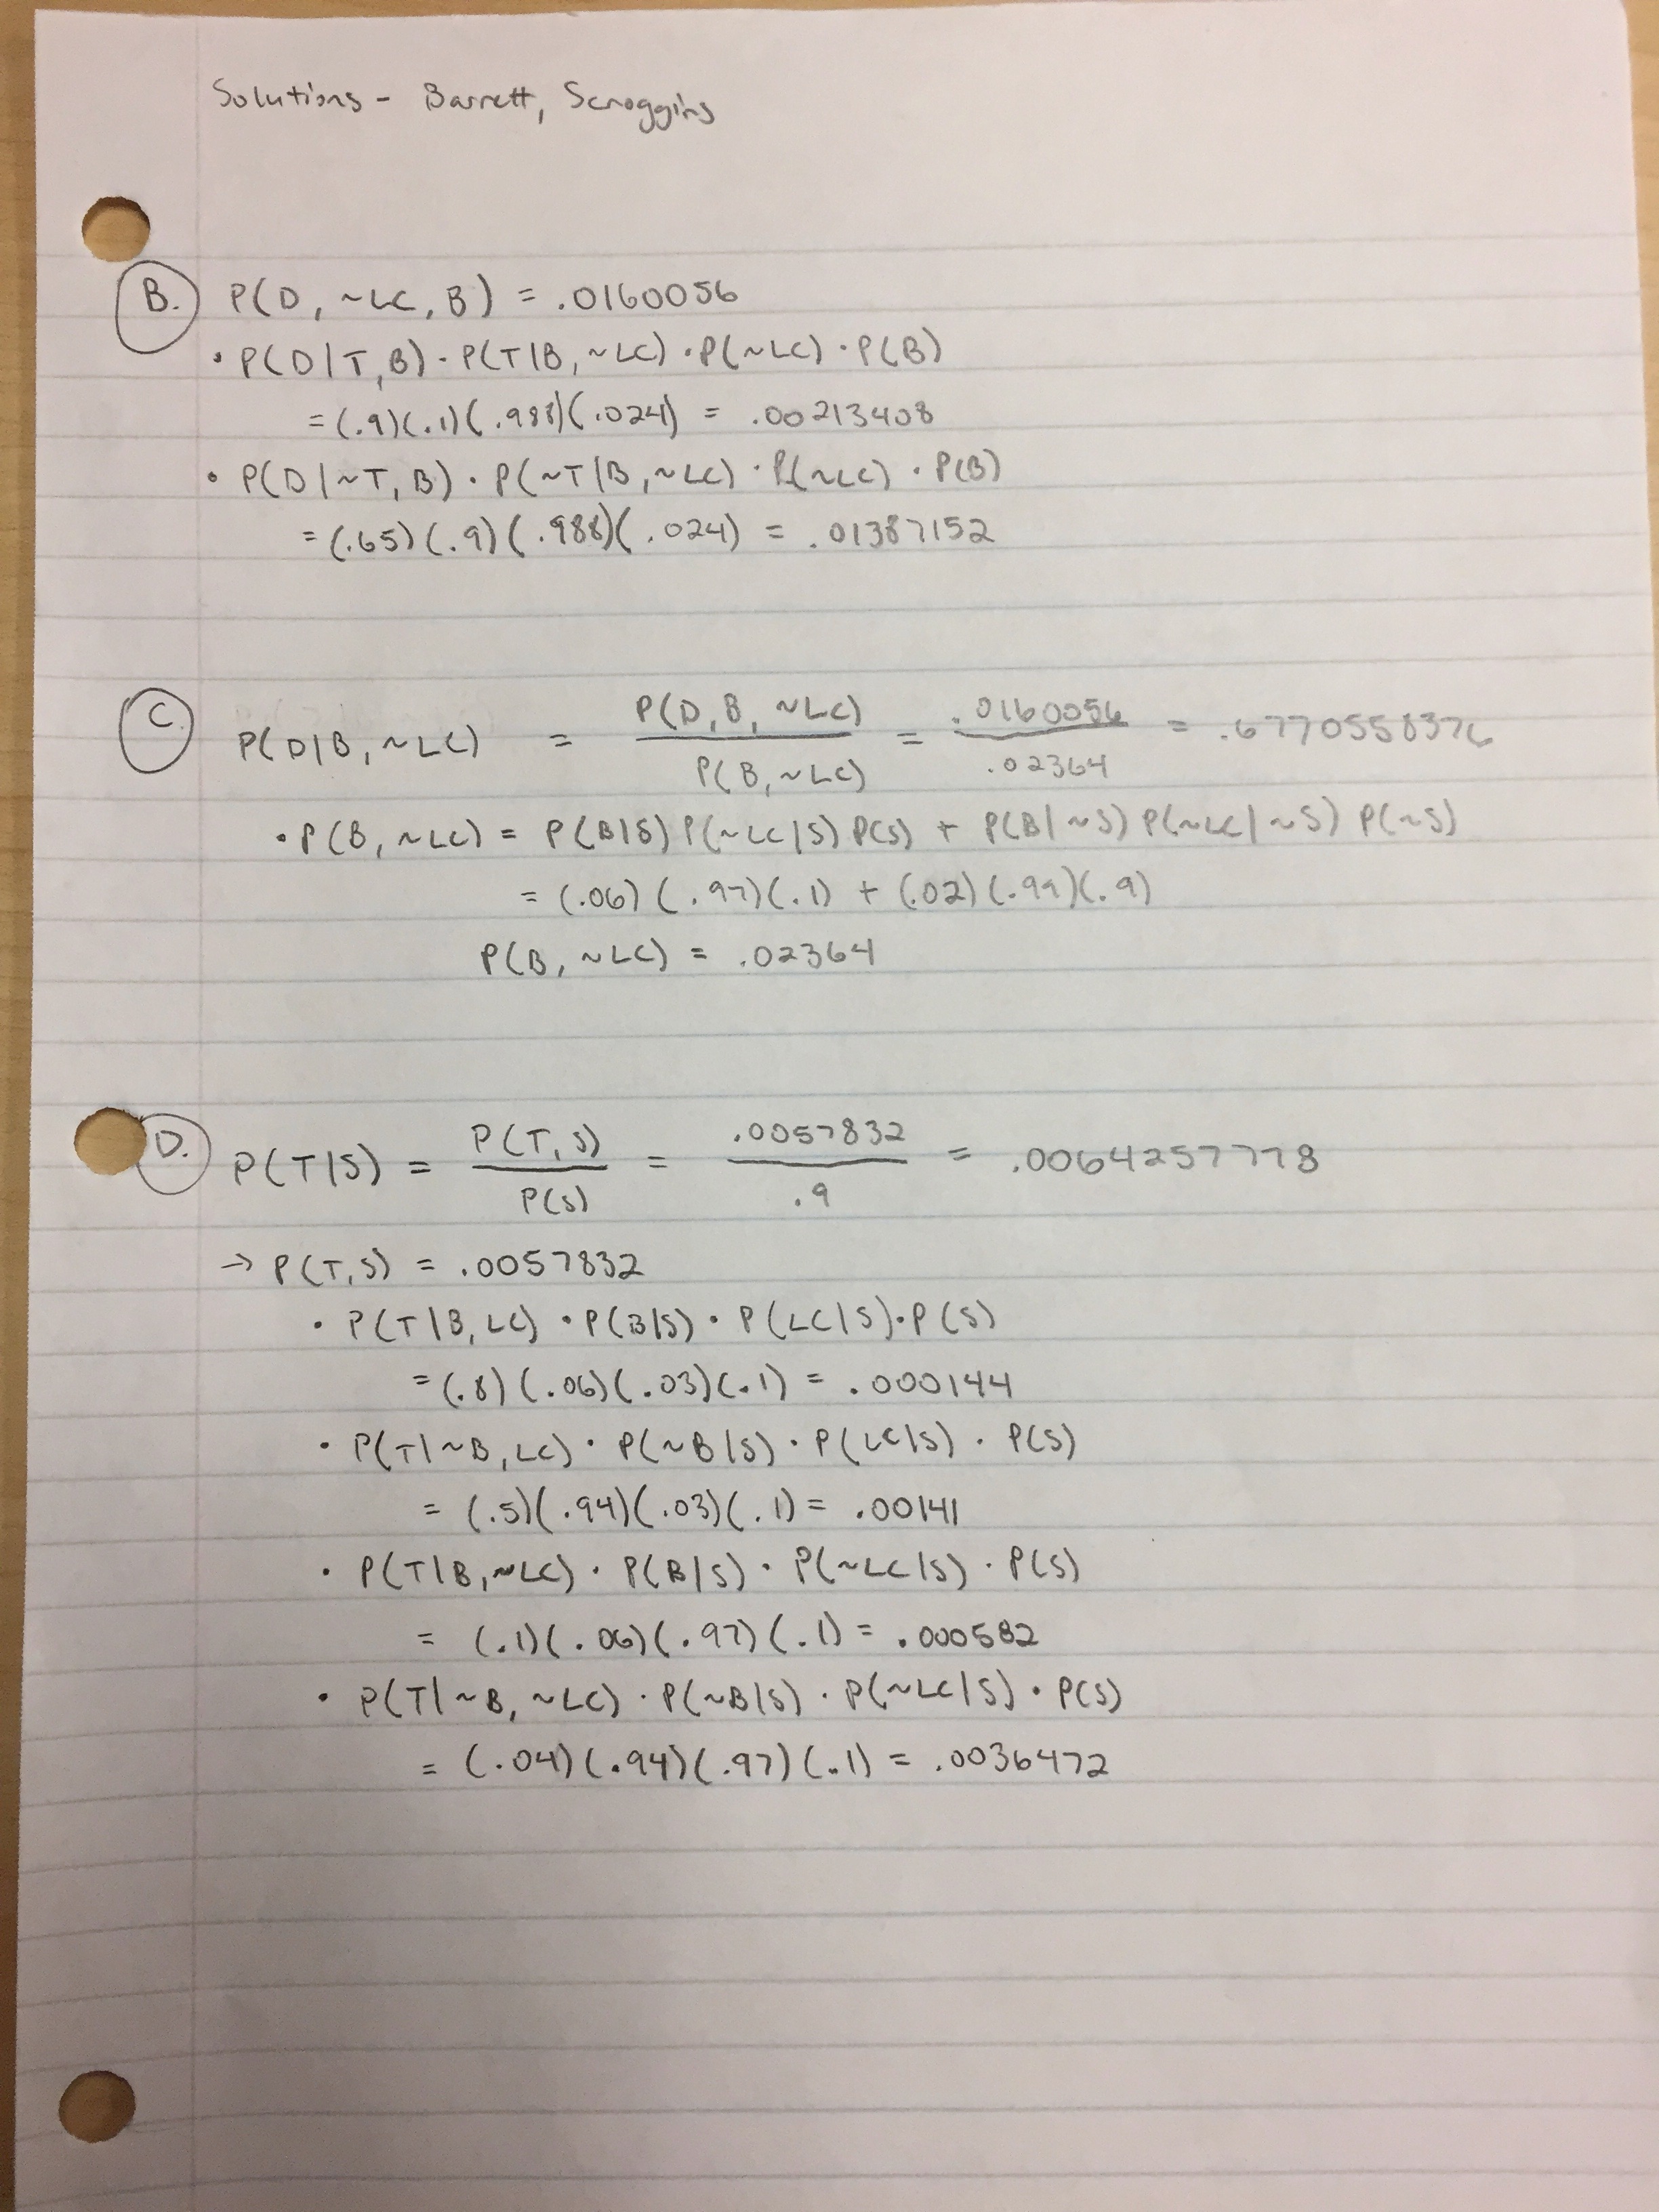 Solutions - Barrett, Scroggins
B. P(D, ~LC, B) = .0160056
• P(D|T, B) · P(T|B, ~LC) · P(~LC) · P(B)
= (.9)(.1)(.988)(.024) = .00213408
• P(D|~T, B) · P(~T|B, ~LC) · P(~LC) · P(B)
= (.65)(.9)(.988)(.024) = .01387152
C. P(D|B, ~LC) = P(D, B, ~LC) / P(B, ~LC) = .0160056 / .02364 = .6770558376
• P(B, ~LC) = P(B|S) P(~LC|S) P(S) + P(B|~S) P(~LC|~S) P(~S)
= (.06)(.97)(.1) + (.02)(.99)(.9)
P(B, ~LC) = .02364
D. P(T|S) = P(T, S) / P(S) = .0057832 / .9 = .0064257778
→ P(T, S) = .0057832
• P(T|B, LC) · P(B|S) · P(LC|S) · P(S)
= (.8)(.06)(.03)(.1) = .000144
• P(T|~B, LC) · P(~B|S) · P(LC|S) · P(S)
= (.5)(.94)(.03)(.1) = .00141
• P(T|B, ~LC) · P(B|S) · P(~LC|S) · P(S)
= (.1)(.06)(.97)(.1) = .000582
• P(T|~B, ~LC) · P(~B|S) · P(~LC|S) · P(S)
= (.04)(.94)(.97)(.1) = .0036472